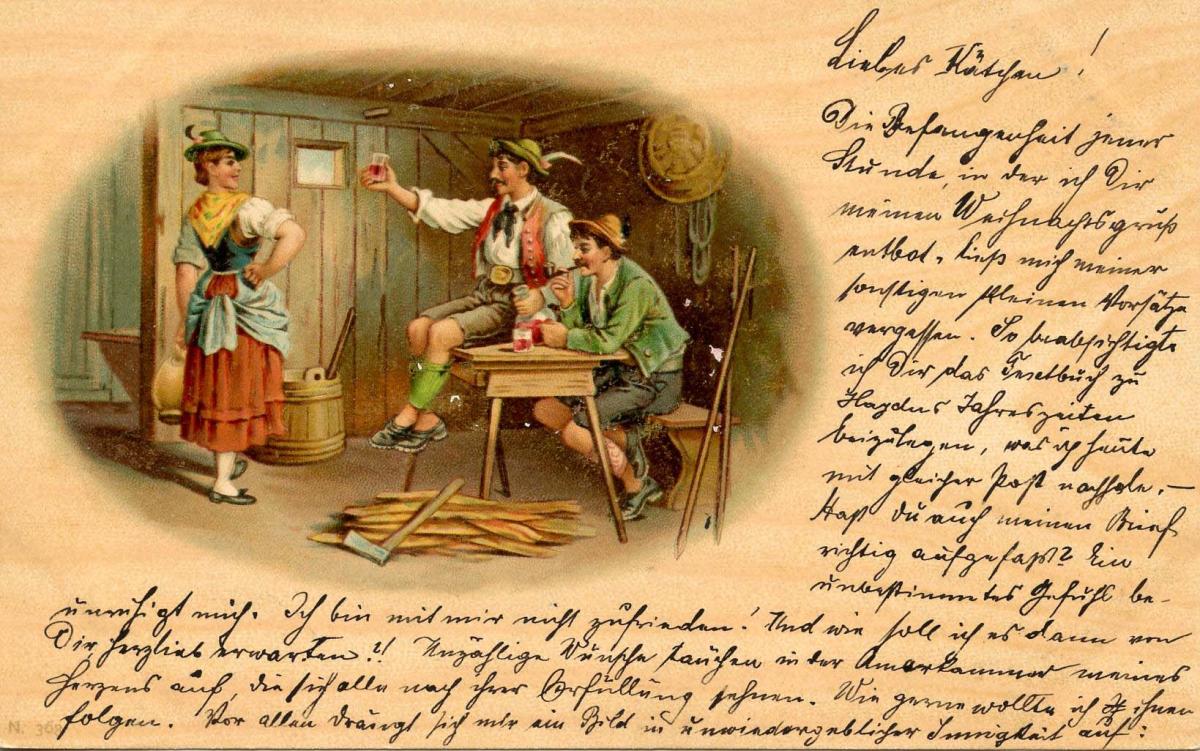 Liebes Kätchen!
Die Befangenheit jener
Stunde, in der ich Dir
meinen Weihnachtsgruß
entbot, ließ mich meiner
sonstigen kleinen Vorsätze
vergessen. So beabsichtigte
ich Dir das Textbuch zu
Haydns Jahreszeiten
beizulegen, was ich heute
mit gleicher Post nachhole. —
Hast Du auch meinen Brief
richtig aufgefaßt? Ein
unbestimmtes Gefühl be-
unruhigt mich. Ich bin mit mir nicht zufrieden! Und wie soll ich es dann von
Dir Herzlieb erwarten?! Unzählige Wünsche tauchen in der kammer meines
Herzens auf, die sich alle nach ihrer Erfüllung sehnen. Wie gerne wollte ich ihnen
folgen. Vor allen drängt sich mir ein Bild in unwiedergeblicher Innigkeit auf:
N. 36